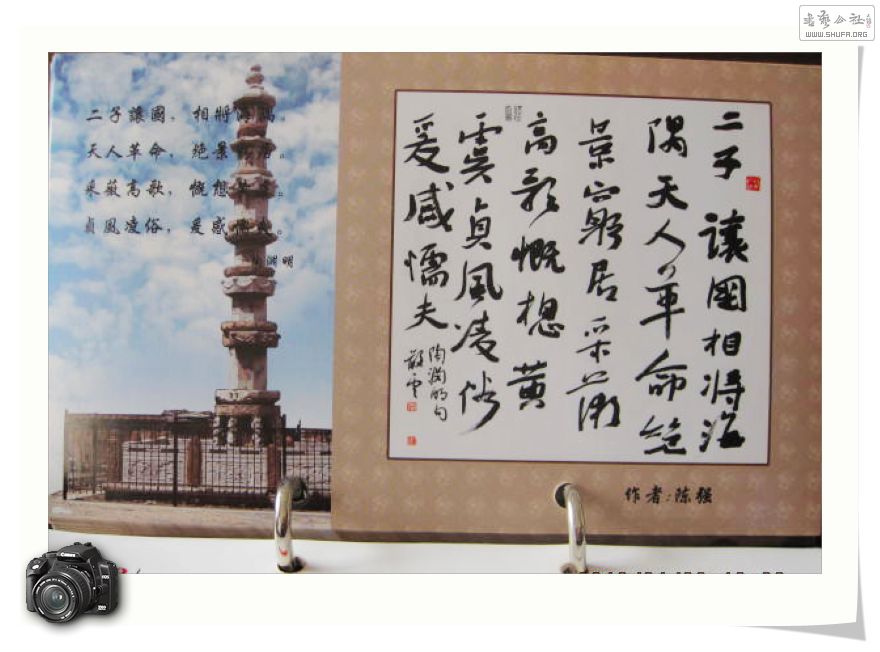 書藝公社
WWW.SHUFA.ORG
二子讓國，相將海隅。
天人革命，絶景窮居。
采薇高歌，慨想黃虞。
貞風凌俗，爰感懦夫。
淵明
二子讓國相将海
隅天人革命絶
景窮居采薇
高歌慨想黄
虞貞風凌俗
爰感懦夫
陶渊明句
作者:陈强
Canon
EOS